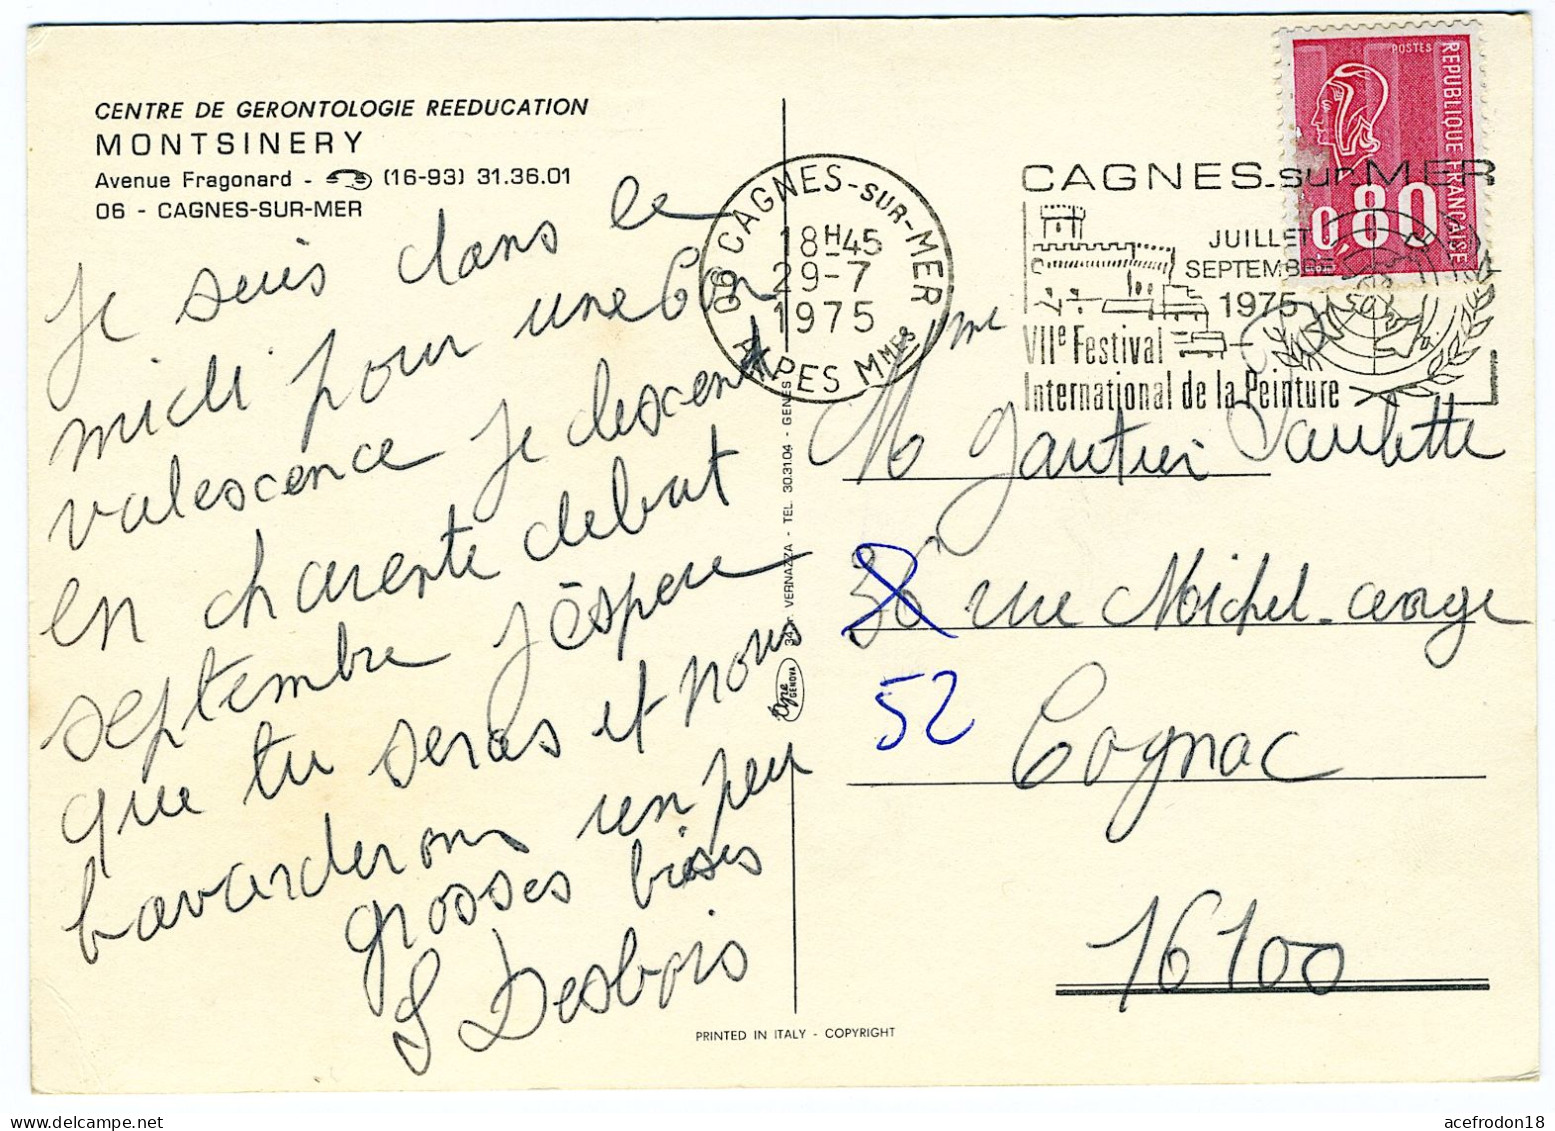 CENTRE DE GERONTOLOGIE REEDUCATION
MONTSINERY
Avenue Fragonard - (16-93) 31.36.01
06 - CAGNES-SUR-MER
Je suis dans le
midi pour une con
valescence je descent
en charente debut
septembre j'éspere
que tu seras et nous
bavarderons un peu
grosses bises
S Desbois
06 CAGNES-SUR-MER
18H45
29-7
1975
ALPES MMES
CAGNES-sur-MER
JUILLET
SEPTEMBRE
1975
VIIe Festival
International de la Peinture
POSTES
REPUBLIQUE FRANÇAISE
0,80
Mme
M Gautier Paulette
36 rue Michel-ange
52
Cognac
16100
VERNAZZA - TEL. 30.31.04 - GENES
GENOVA
PRINTED IN ITALY - COPYRIGHT
acefrodon18